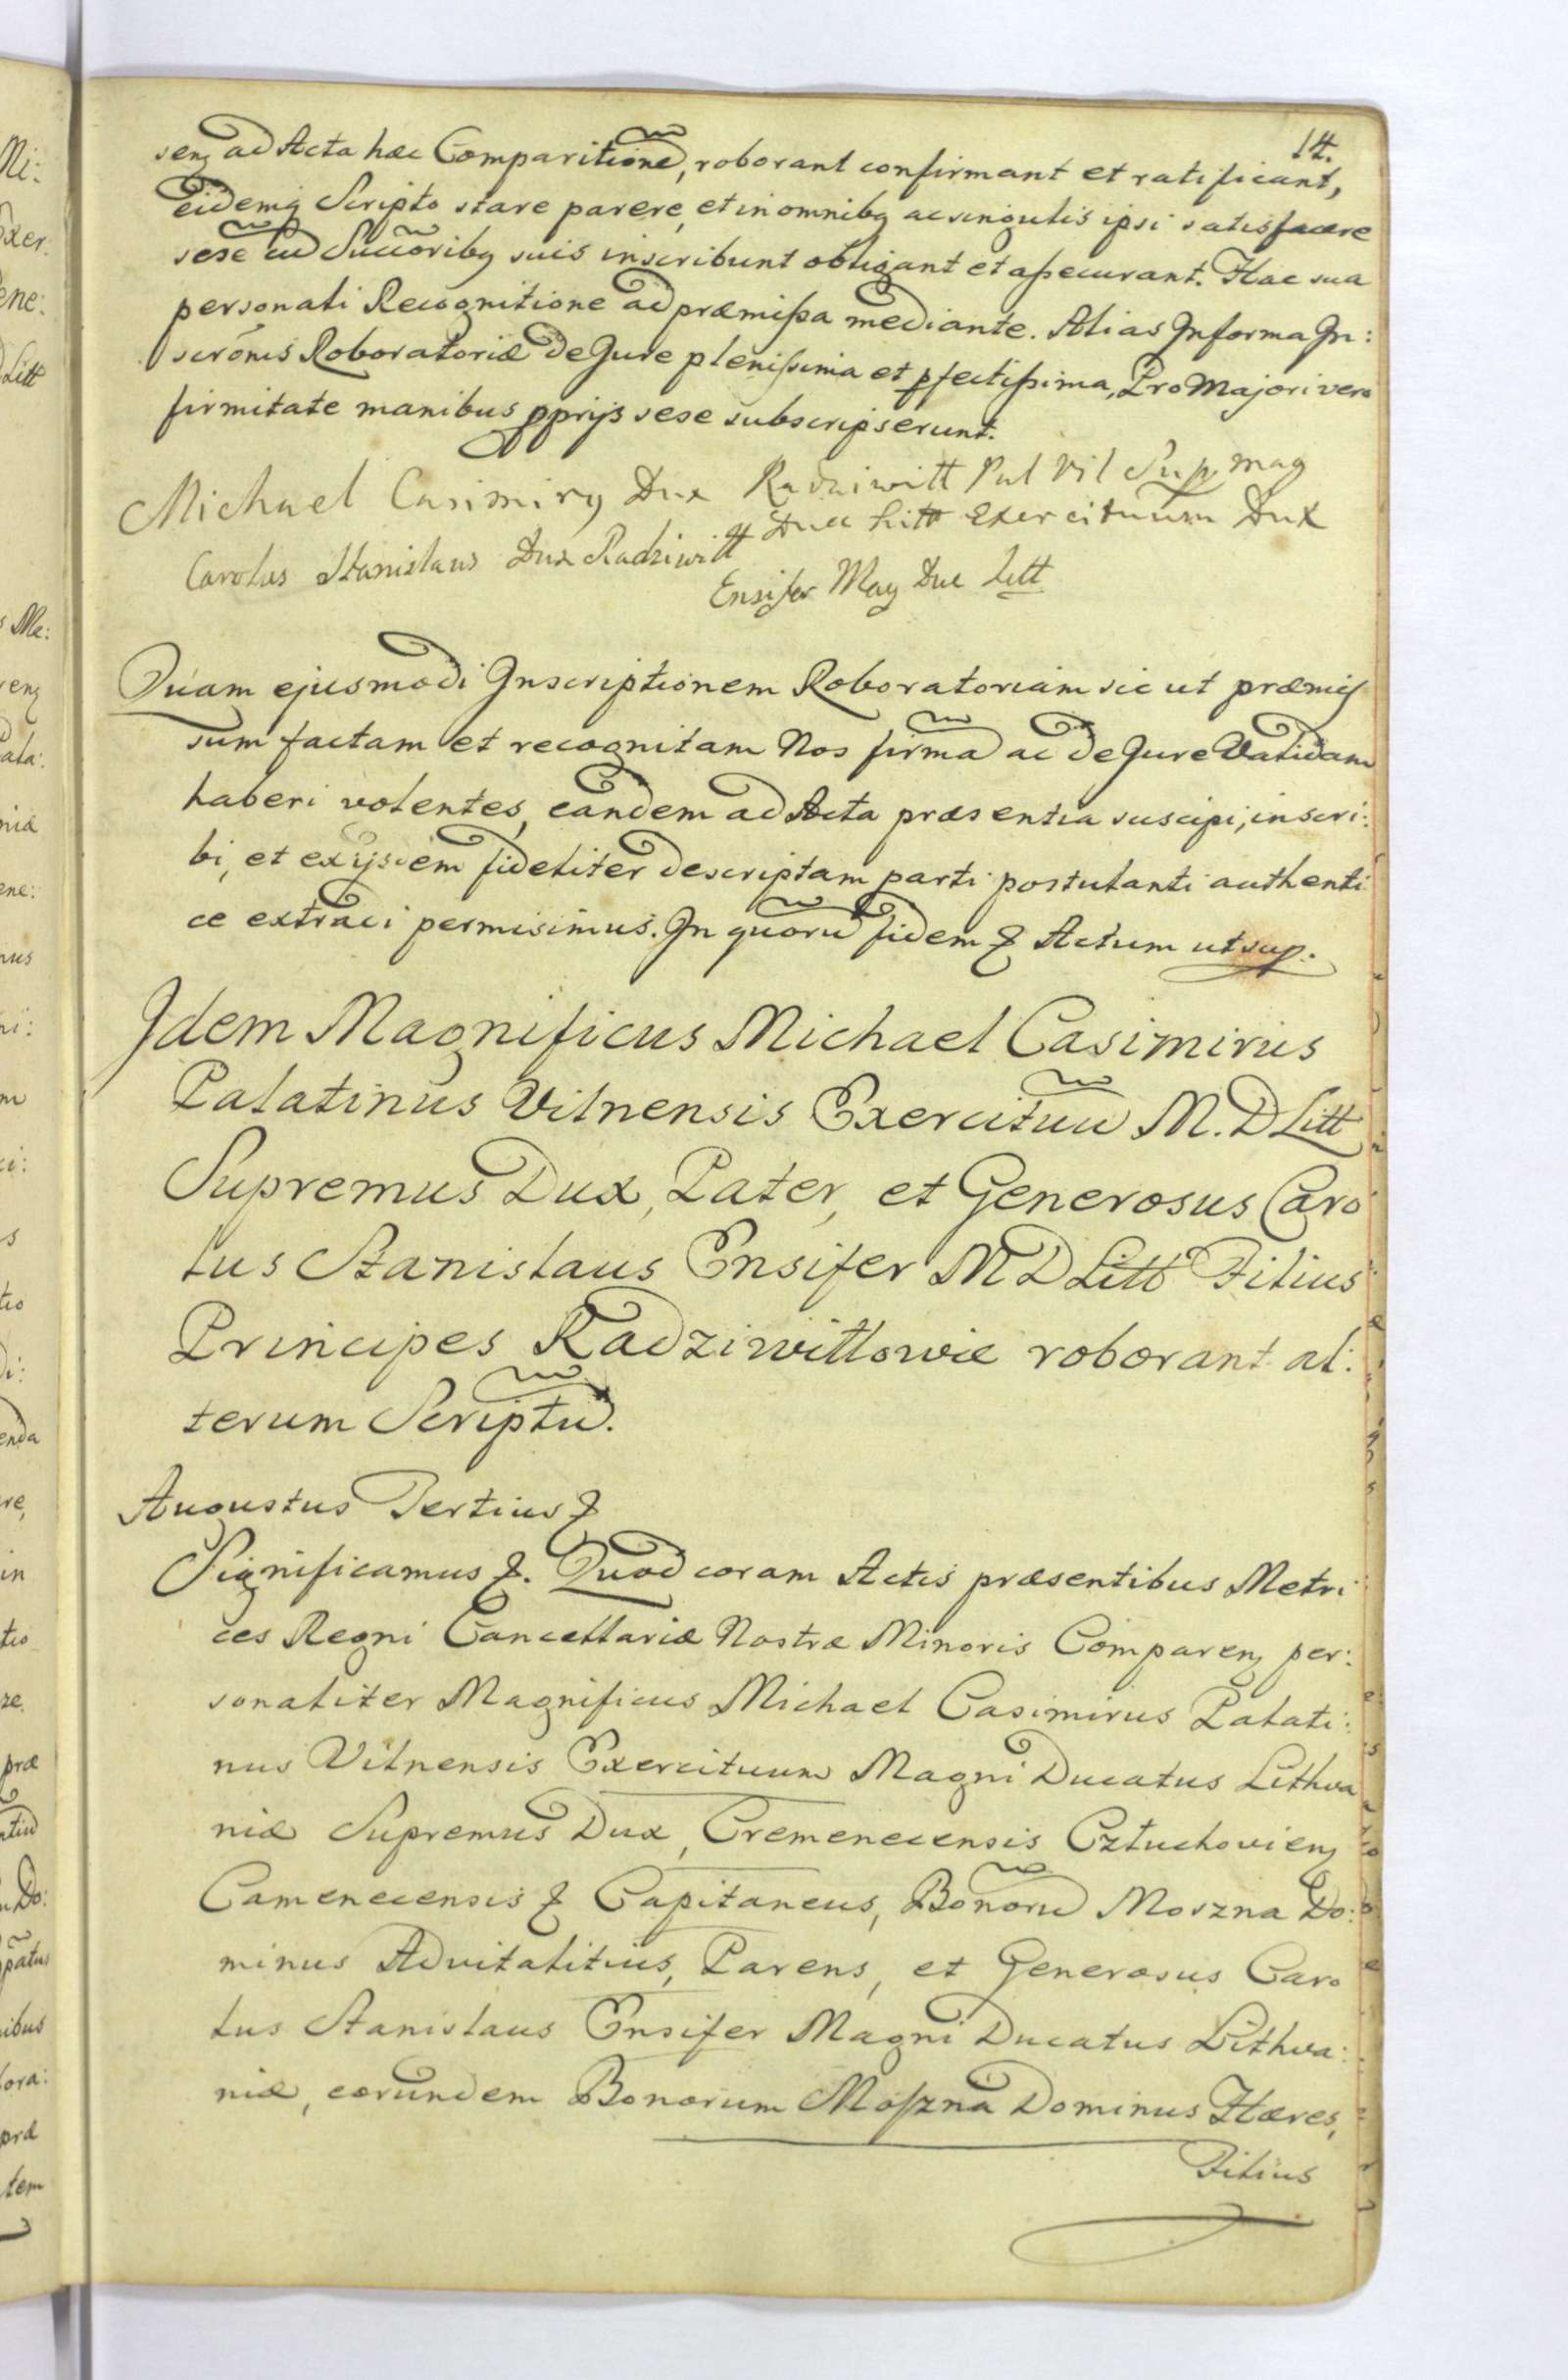 14.
sens ad Acta hæc Comparitione, roborant confirmant et ratificant,
eidemq Scripto stare parere, et in omnibq ac singulis ipsi satisfacere
sese cu Succoribq suis inscribunt obligant et assecurant. Hac sua
personali Recognitione ad præmissa mediante. Alias In forma In:
scrōnis Roboratoriæ de Jure plenissima et pfectissima, Pro Majori vero
firmitate manibus pprijs sese subscripserunt.
Michael Casimirq Dux Radziwiłł Pal Vil Sup mag
Duc Litt Exercituum Dux
Carolus Stanislaus Dux Radziwiłł
Ensifer Mag Duc Litt
Quam ejusmodi Inscriptionem Roboratoriam sic ut præmis
sum factam et recognitam Nos firma ac de Jure Validam
haberi volentes, eandem ad Acta præsentia suscipi, inscri:
bi, et ex ijsdem fideliter descriptam parti postulanti authenti
ce extradi permisimus. In quoru fidem & Actum ut sup.
Idem Magnificus Michael Casimirus
Palatinus Vilnensis Exercituu M. D Litt
Supremus Dux, Pater, et Generosus Caro
lus Stanislaus Ensifer M D Litt Filius
Principes Radziwiłłowie roborant al:
terum Scriptu.
Augustus Tertius &
Significamus &. Quod coram Actis præsentibus Metri
ces Regni Cancellariæ Nostræ Minoris Comparens per:
sonaliter Magnificus Michael Casimirus Palati:
nus Vilnensis Exercituum Magni Ducatus Lithva
niæ Supremus Dux, Cremenecensis Człuchoviens
Camenecensis & Capitaneus, Bonoru Moszna Do:
minus Advitalitius, Parens, et Generosus Caro
lus Stanislaus Ensifer Magni Ducatus Lithva:
niæ, eorundem Bonorum Moszna Dominus Hæres,
Filius